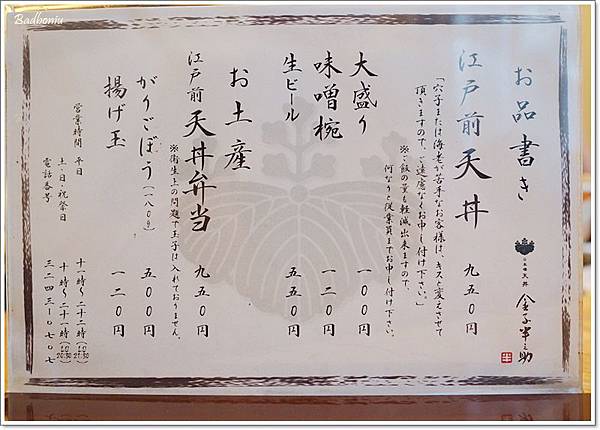 Badboniu
お品書き
日本橋 天丼 金子半之助
半
江戸前天丼 九五〇円
「穴子または海老が苦手なお客様は、キスと変えさせて
頂きますので、ご遠慮なくお申し付け下さい。」
※ご飯の量も軽減出来ますので、
何なりと従業員までお申し付け下さい。
大盛り 一〇〇円
味噌椀 一二〇円
生ビール 五五〇円
お土産
江戸前 天丼弁当 九五〇円
※衛生上の問題で玉子は入れておりません。
がりごぼう(一八〇g) 五〇〇円
揚げ玉 一二〇円
営業時間 平日 十一時〜二十二時
土・日・祝祭日 十時〜二十一時
電話番号 三二四三-〇七〇七